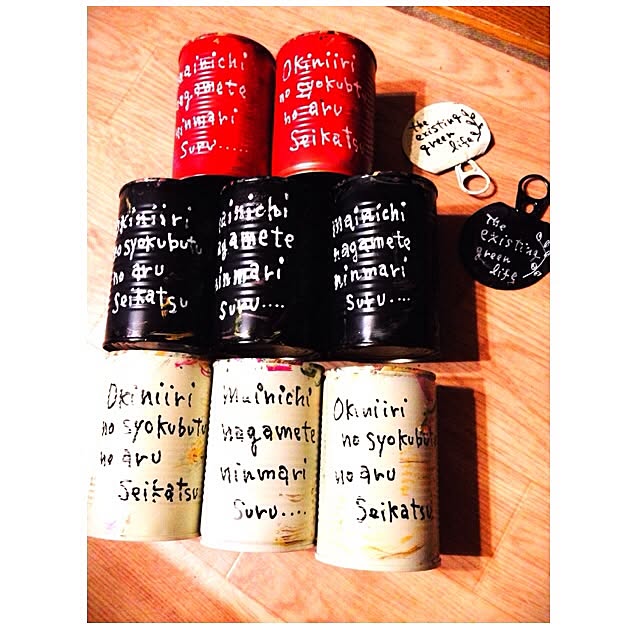 mainichi
nagamete
ninmari
Suru.....
Okiniiri
no syokubutu
no aru
Seikatsu
the
existing
green
life
The
existing
green
life
Okiniiri
no syokubutu
no aru
Seikatsu
mainichi
nagamete
ninmari
suru....
mainichi
nagamete
ninmari
suru....
Okiniiri
no syokubutu
no aru
Seikatsu
mainichi
nagamete
ninmari
Suru....
Okiniiri
no syokubutu
no aru
Seikatsu